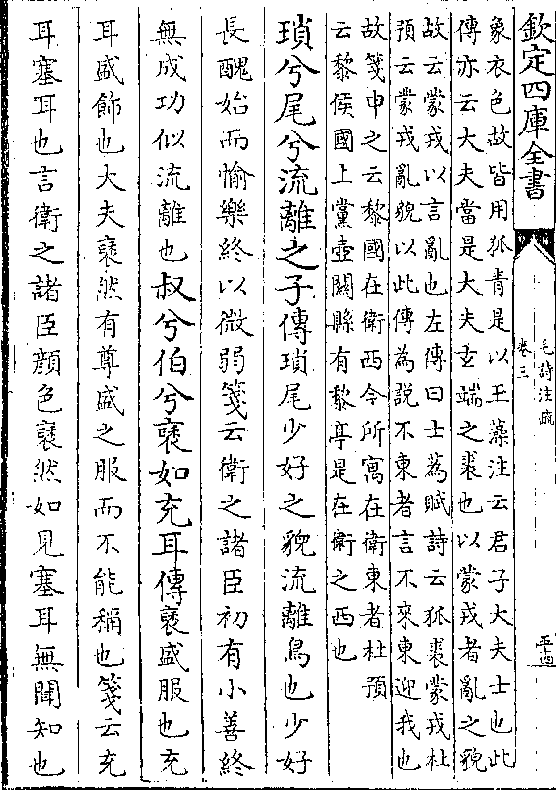 欽定四庫全書
毛詩注疏
卷三
五十四
象衣色故皆用狐青是以玉藻注云君子大夫士也此
傳亦云大夫當是大夫玄端之裘也以蒙戎者亂之貌
故云蒙戎以言亂也左傳曰士蒍賦詩云狐裘蒙戎杜
預云蒙戎亂貌以此傳為說不東者言不來東迎我也
故箋申之云黎國在衛西今所寓在衛東者杜預
云黎侯國上黨壺關縣有黎亭是在衛之西也
瑣兮尾兮流離之子傳瑣尾少好之貌流離鳥也少好
長醜始而愉樂終以微弱箋云衛之諸臣初有小善終
無成功似流離也叔兮伯兮褎如充耳傳褎盛服也充
耳盛飾也大夫褎然有尊盛之服而不能稱也箋云充
耳塞耳也言衛之諸臣顔色褎然如見塞耳無聞知也